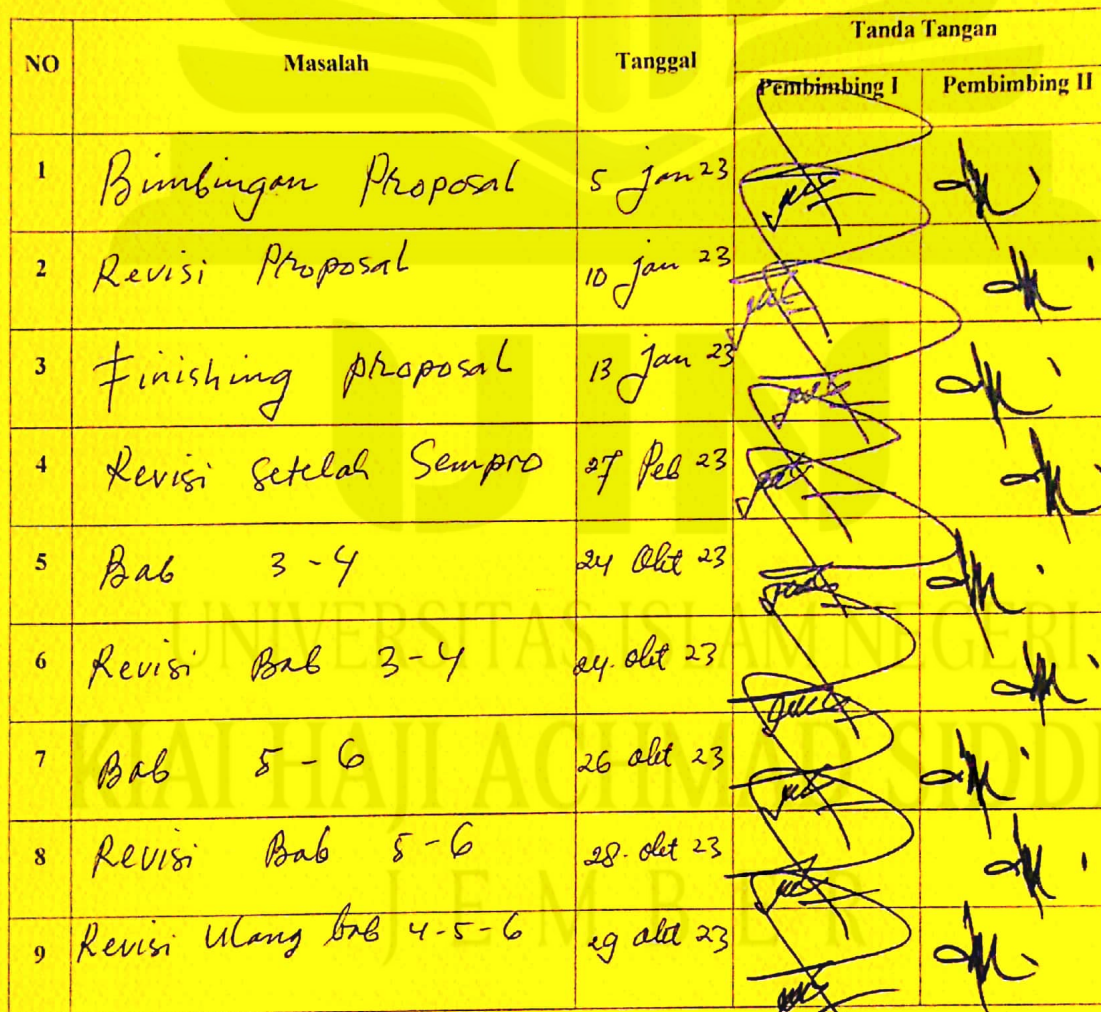 NO Masalah Tanggal Tanda Tangan
Pembimbing I Pembimbing II
1 Bimbingan Proposal 5 jan 23
2 Revisi Proposal 10 jan 23
3 Finishing proposal 13 jan 23
4 Revisi setelah Sempro 27 Peb 23
5 Bab 3-4 24 Okt 23
6 Revisi Bab 3-4 24. okt 23
7 Bab 5-6 26 okt 23
8 Revisi Bab 5-6 28. okt 23
9 Revisi Ulang bab 4-5-6 29 okt 23
UIN
UNIVERSITAS ISLAM NEGERI
KIAI HAJI ACHMAD SIDDI
JEMBER